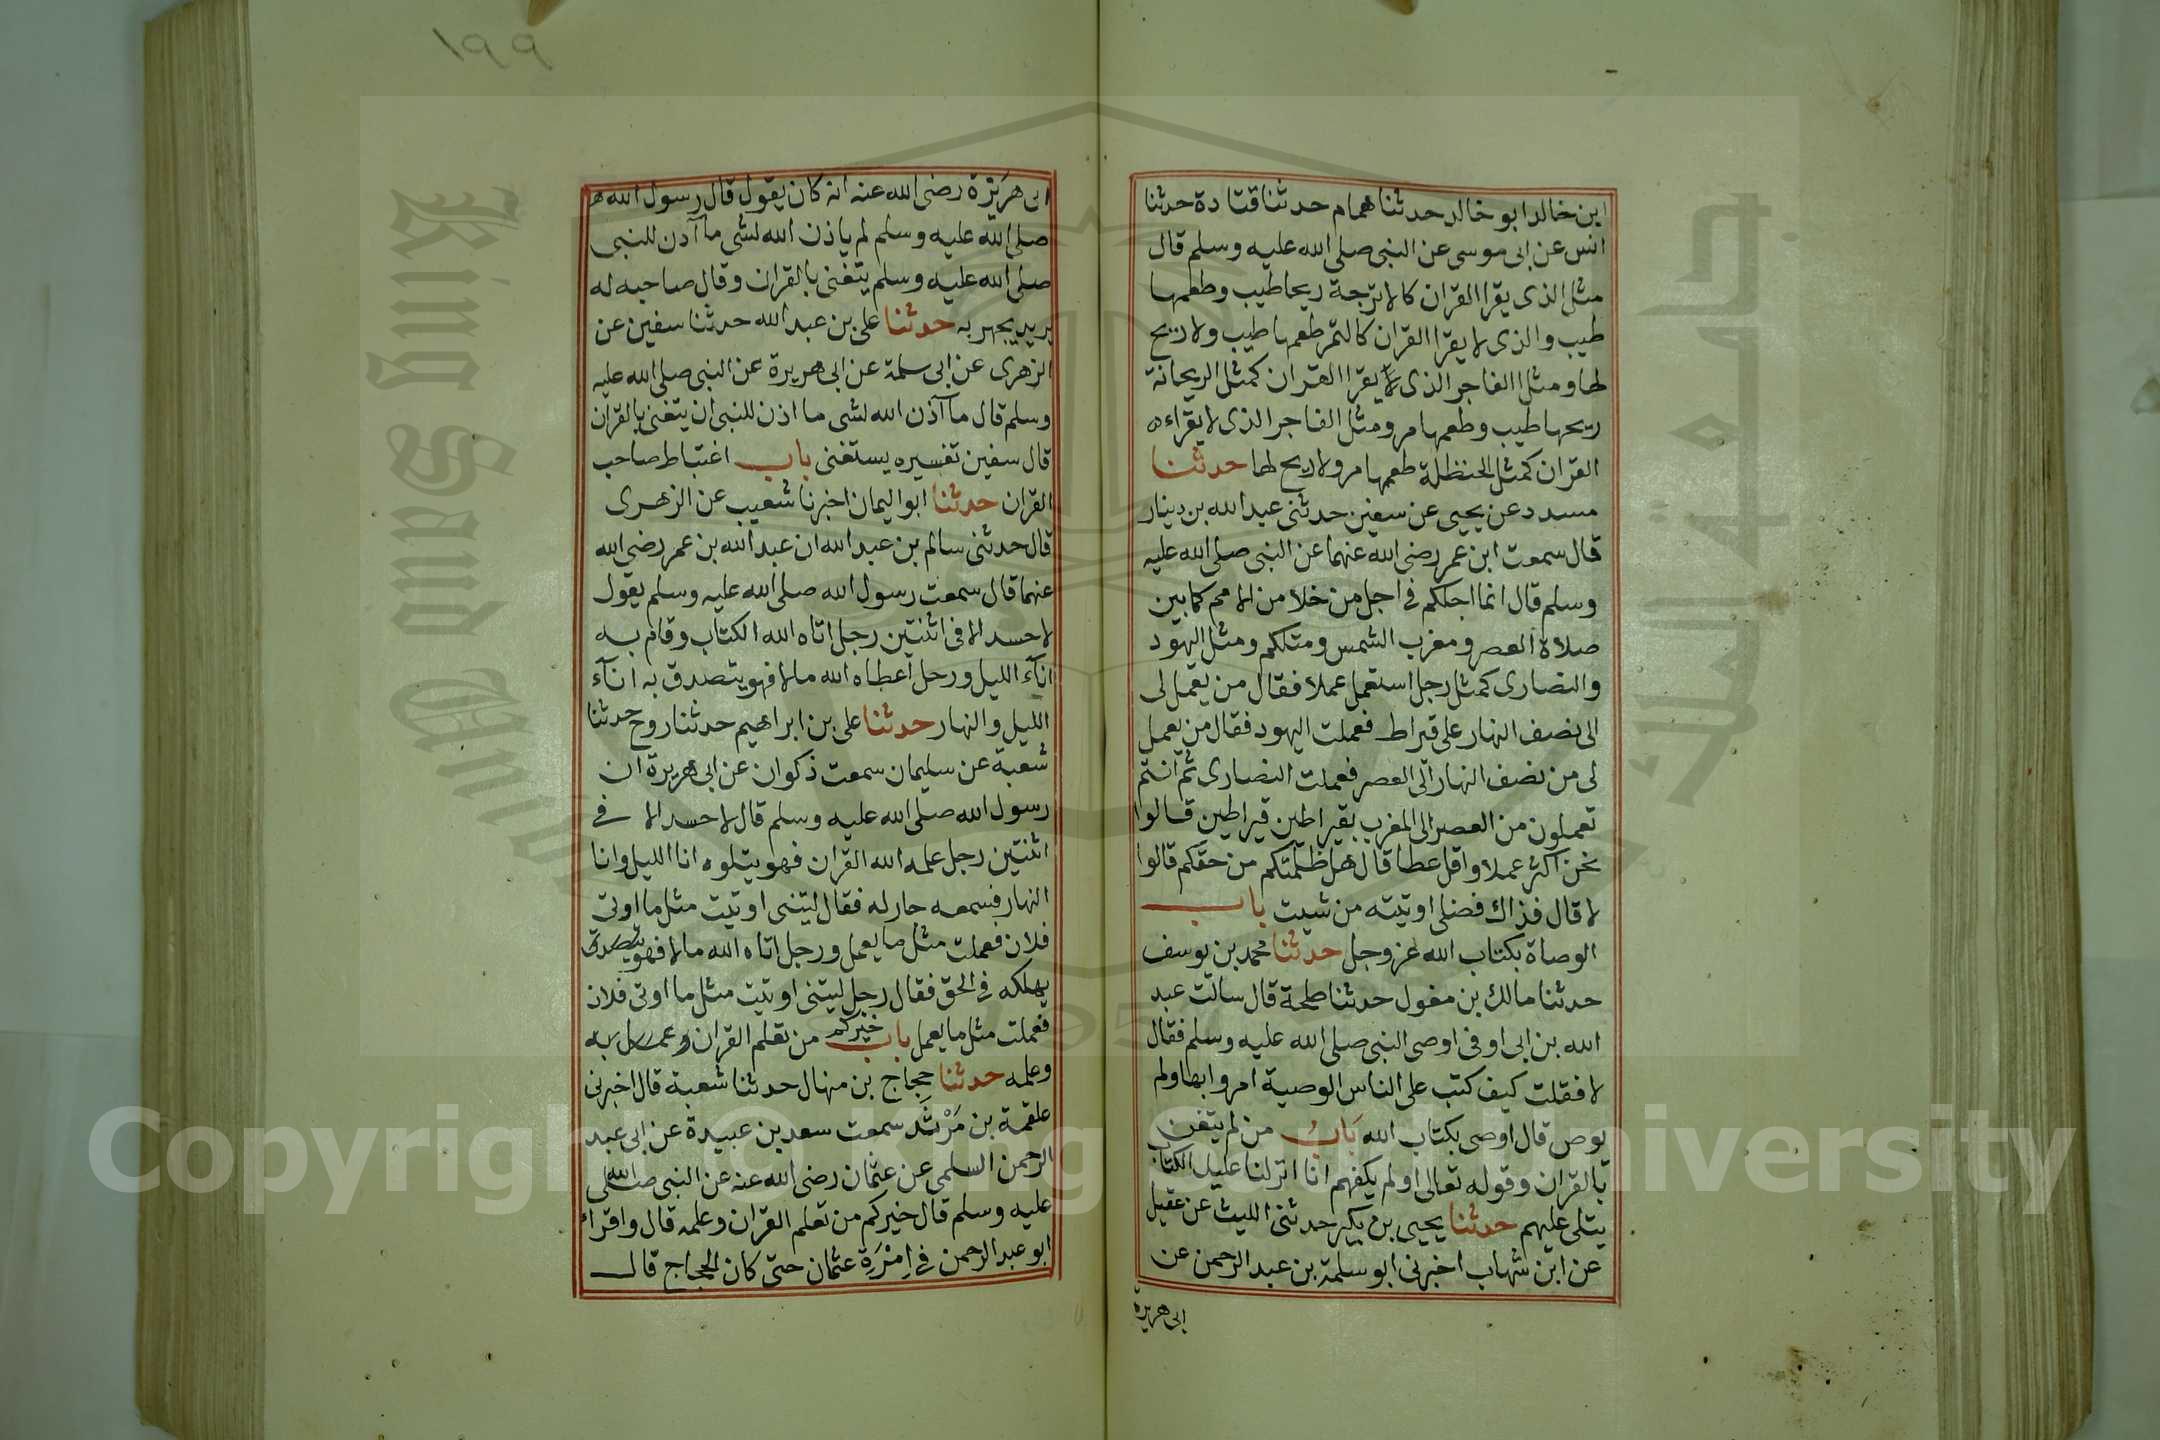 ابن خالد ابو خالد حدثنا همام حدثنا قتادة حدثنا
انس عن ابى موسى عن النبى صلى الله عليه وسلم قال
مثل الذى يقرا القران كالاترجة ريحا طيب وطعمها
طيب والذى لا يقرا القران كالتمر طعمها طيب ولا ريح
لها ومثل الفاجر الذى يقرا القران كمثل الريحانة
ريحها طيب وطعمها مر ومثل الفاجر الذى لا يقراء
القران كمثل الحنظلة طعمها مر ولا ريح لها حدثنا
مسدد عن يحيى عن سفين حدثنى عبد الله بن دينار
قال سمعت ابن عمر رضى الله عنهما عن النبى صلى الله عليه
وسلم قال انما اجلكم فى اجل من خلا من الامم كما بين
صلاة العصر ومغرب الشمس ومثلكم ومثل اليهود
والنصارى كمثل رجل استعمل عملا فقال من يعمل لى
الى نصف النهار على قيراط فعملت اليهود فقال من يعمل
لى من نصف النهار الى العصر فعملت النصارى ثم انتم
تعملون من العصر الى المغرب بقيراطين قيراطين قالوا
نحن اكثر عملا واقل عطا قال هل ظلمتكم من حقكم قالوا
لا قال فذاك فضلى اوتيته من شيت باب
الوصاة بكتاب الله عز وجل حدثنا محمد بن يوسف
حدثنا مالك بن مغول حدثنا طلحة قال سالت عبد
الله بن ابى اوفى اوصى النبى صلى الله عليه وسلم فقال
لا فقلت كيف كتب على الناس الوصية امروا بها ولم
يوص قال اوصى بكتاب الله باب من لم يتغن
بالقران وقوله تعالى اولم يكفهم انا انزلنا عليك الكتاب
يتلى عليهم حدثنا يحيى بن بكير حدثنى الليث عن عقيل
عن ابن شهاب اخبرنى ابو سلمة بن عبد الرحمن عن
ابى هريرة
١٩٩
ابى هريرة رضى الله عنه انه كان يقول قال رسول الله
صلى الله عليه وسلم لم ياذن الله لشى ما آذن للنبى
صلى الله عليه وسلم يتغنى بالقران وقال صاحبه له
يريد يجهر به حدثنا على بن عبد الله حدثنا سفين عن
الزهرى عن ابى سلمة عن ابى هريرة عن النبى صلى الله عليه
وسلم قال ما آذن الله لشى ما اذن للنبى ان يتغنى بالقران
قال سفين تفسيره يستغنى باب اغتباط صاحب
القران حدثنا ابو اليمان اخبرنا شعيب عن الزهرى
قال حدثنى سالم بن عبد الله ان عبد الله بن عمر رضى الله
عنهما قال سمعت رسول الله صلى الله عليه وسلم يقول
لا حسد الا فى اثنتين رجل اتاه الله الكتاب وقام به
انآء الليل ورجل اعطاه الله مالا فهو يتصدق به انآء
الليل والنهار حدثنا على بن ابراهيم حدثنا روح حدثنا
شعبة عن سليمان سمعت ذكوان عن ابى هريرة ان
رسول الله صلى الله عليه وسلم قال لا حسد الا فى
اثنتين رجل علمه الله القران فهو يتلوه انا الليل وانا
النهار فسمعه جار له فقال ليتنى اوتيت مثل ما اوتى
فلان فعملت مثل ما يعمل ورجل اتاه الله مالا فهو يتصدق
يهلكه فى الحق فقال رجل ليتنى اوتيت مثل ما اوتى فلان
فعملت مثل ما يعمل باب خيركم من تعلم القران وعمل به
وعلمه حدثنا حجاج بن منهال حدثنا شعبة قال اخبرنى
علقمة بن مَرْثَد سمعت سعد بن عبيدة عن ابى عبد
الرحمن السلمى عن عثمان رضى الله عنه عن النبى صلى الله
عليه وسلم قال خيركم من تعلم القران وعلمه قال واقراء
ابو عبد الرحمن فى اِمْرَةِ عثمان حتى كان الحجاج قال
King Saud University
جامعة الملك سعود
1957
Copyright © King Saud University